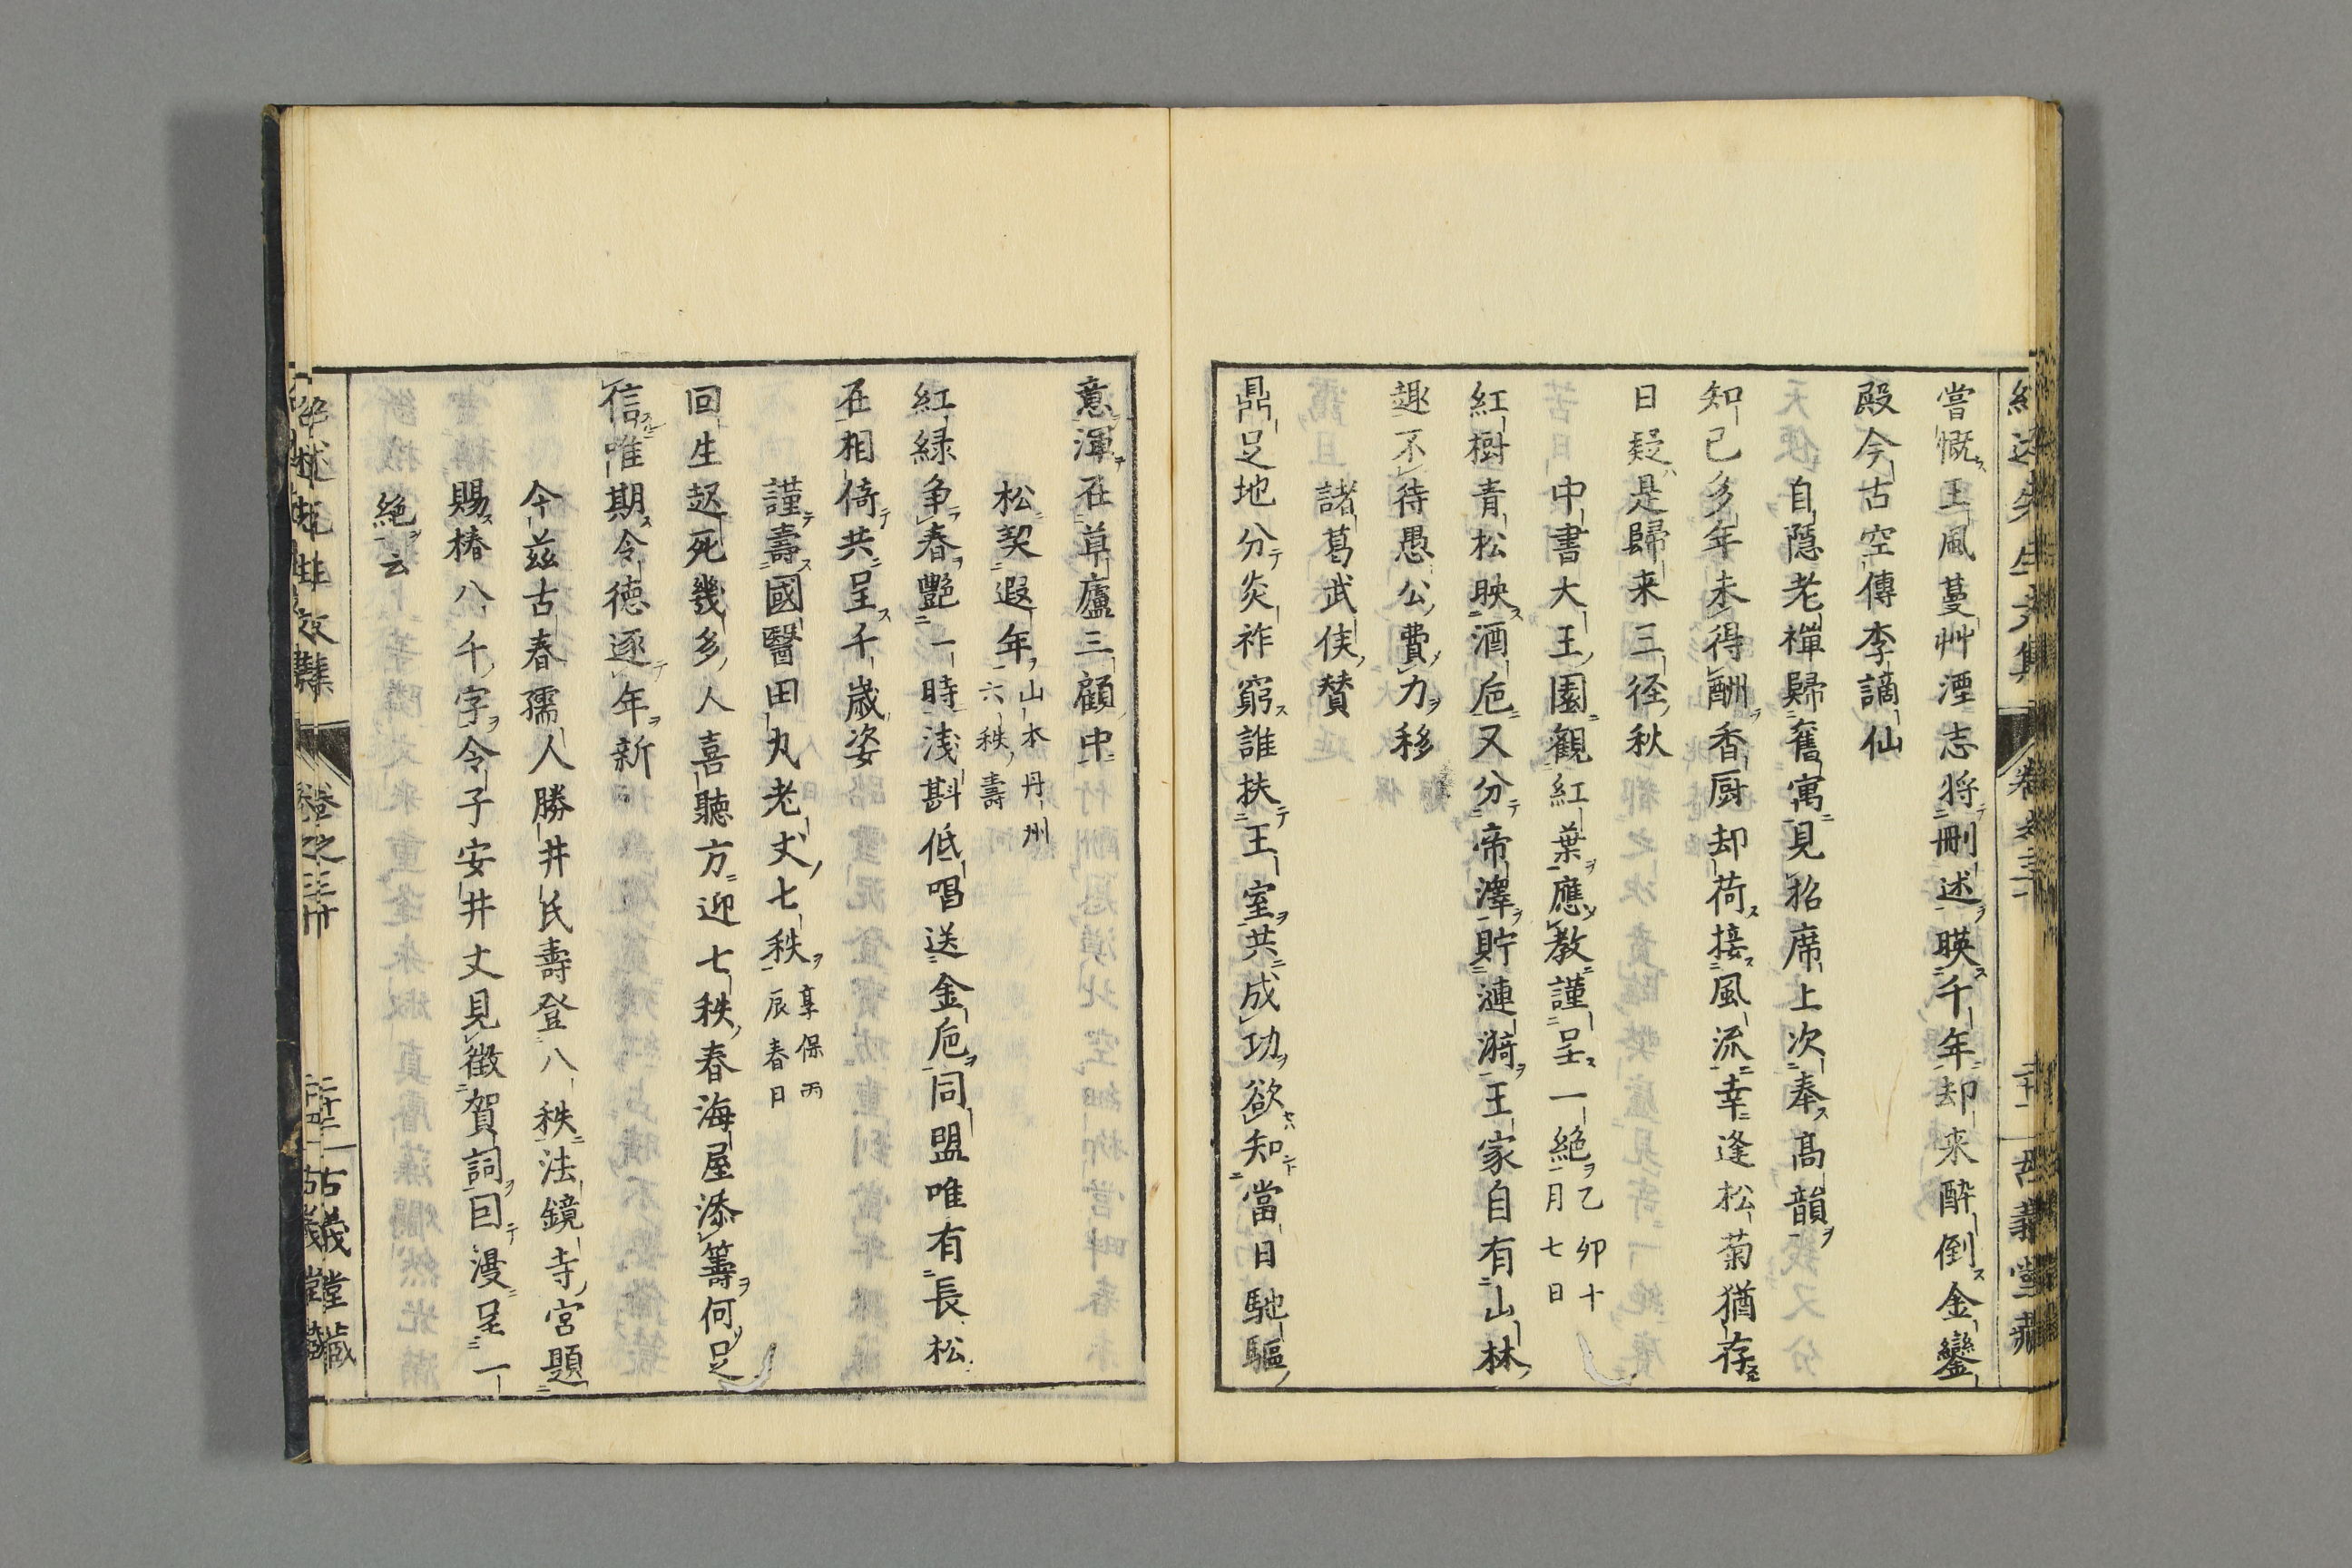 嘗慨王風蔓艸湮志將刪述暎千年却来酔倒金鑾
殿今古空傳李謫仙
自隱老禪歸舊寓見招席上次奉高韻
知己多年未得酬香厨却荷接風流幸逢松菊猶存
日疑是歸来三径秋
中書大王園觀紅葉應教謹呈一絶乙卯十
月七日
紅樹青松映酒巵又分帝澤貯漣漪王家自有山林
趣不待愚公費力移
諸葛武侯賛
鼎足地分炎祚窮誰扶王室共成功欲知當日馳驅
意渾在草廬三顧中
松契遐年山本丹州
六秩壽
紅緑争春艷一時淺斟低唱送金巵同盟唯有長松
在相倚共呈千歳姿
謹壽國醫田丸老丈七秩享保丙
辰春日
回生起死幾多人喜聽方迎七秩春海屋添籌何足
信唯期令徳逐年新
今茲古春孺人勝井氏壽登八秩法鏡寺宮題
賜椿八千字令子安井丈見徴賀詞因漫呈一
絶云
紹述先生文集
卷之三十
古義堂藏